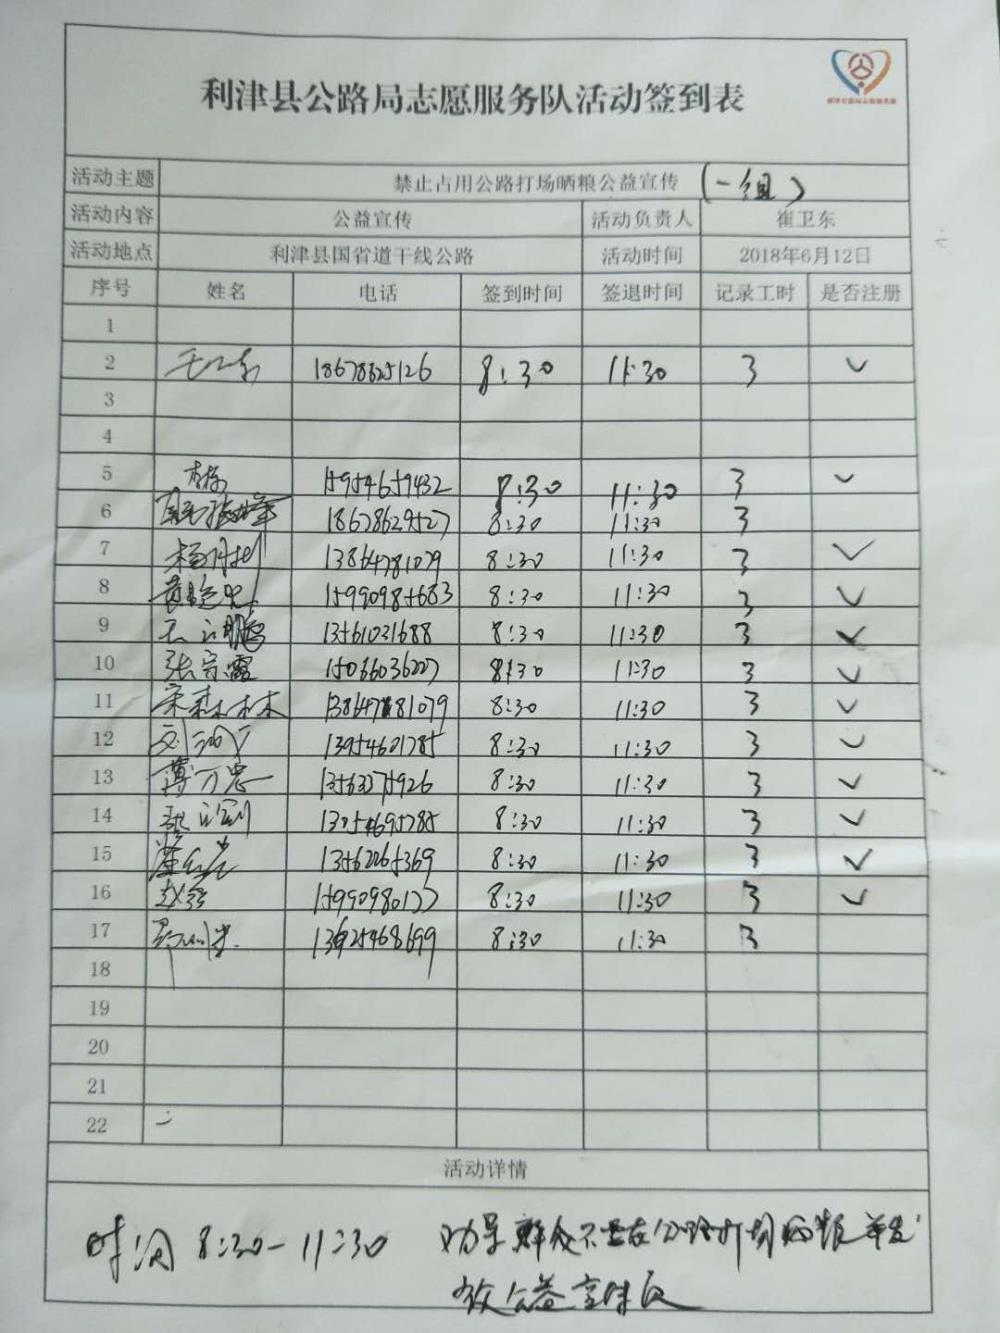 利津县公路局志愿服务队活动签到表
活动主题 禁止占用公路打场晒粮公益宣传 (一组)
活动内容 公益宣传 活动负责人 崔卫东
活动地点 利津县国省道干线公路 活动时间 2018年6月12日
序号 姓名 电话 签到时间 签退时间 记录工时 是否注册
1
2 8:30 11:30 3 ✓
3
4
5 15954659432 8:30 11:30 3 ✓
6 18678629527 8:30 11:30 3
7 13864781079 8:30 11:30 3 ✓
8 15990985683 8:30 11:30 3 ✓
9 13561031688 8:30 11:30 3 ✓
10 张宗霞 15066036207 8:30 11:30 3 ✓
11 宋森林 8:30 11:30 3 ✓
12 13954601785 8:30 11:30 3 ✓
13 薄万忠 13563275926 8:30 11:30 3 ✓
14 13054695785 8:30 11:30 3 ✓
15 13562265369 8:30 11:30 3 ✓
16 15990980177 8:30 11:30 3 ✓
17 8:30 11:30 3
18
19
20
21
22
活动详情
时间 8:30-11:30 劝导群众不要在公路打场晒粮 并发
放公益宣传页